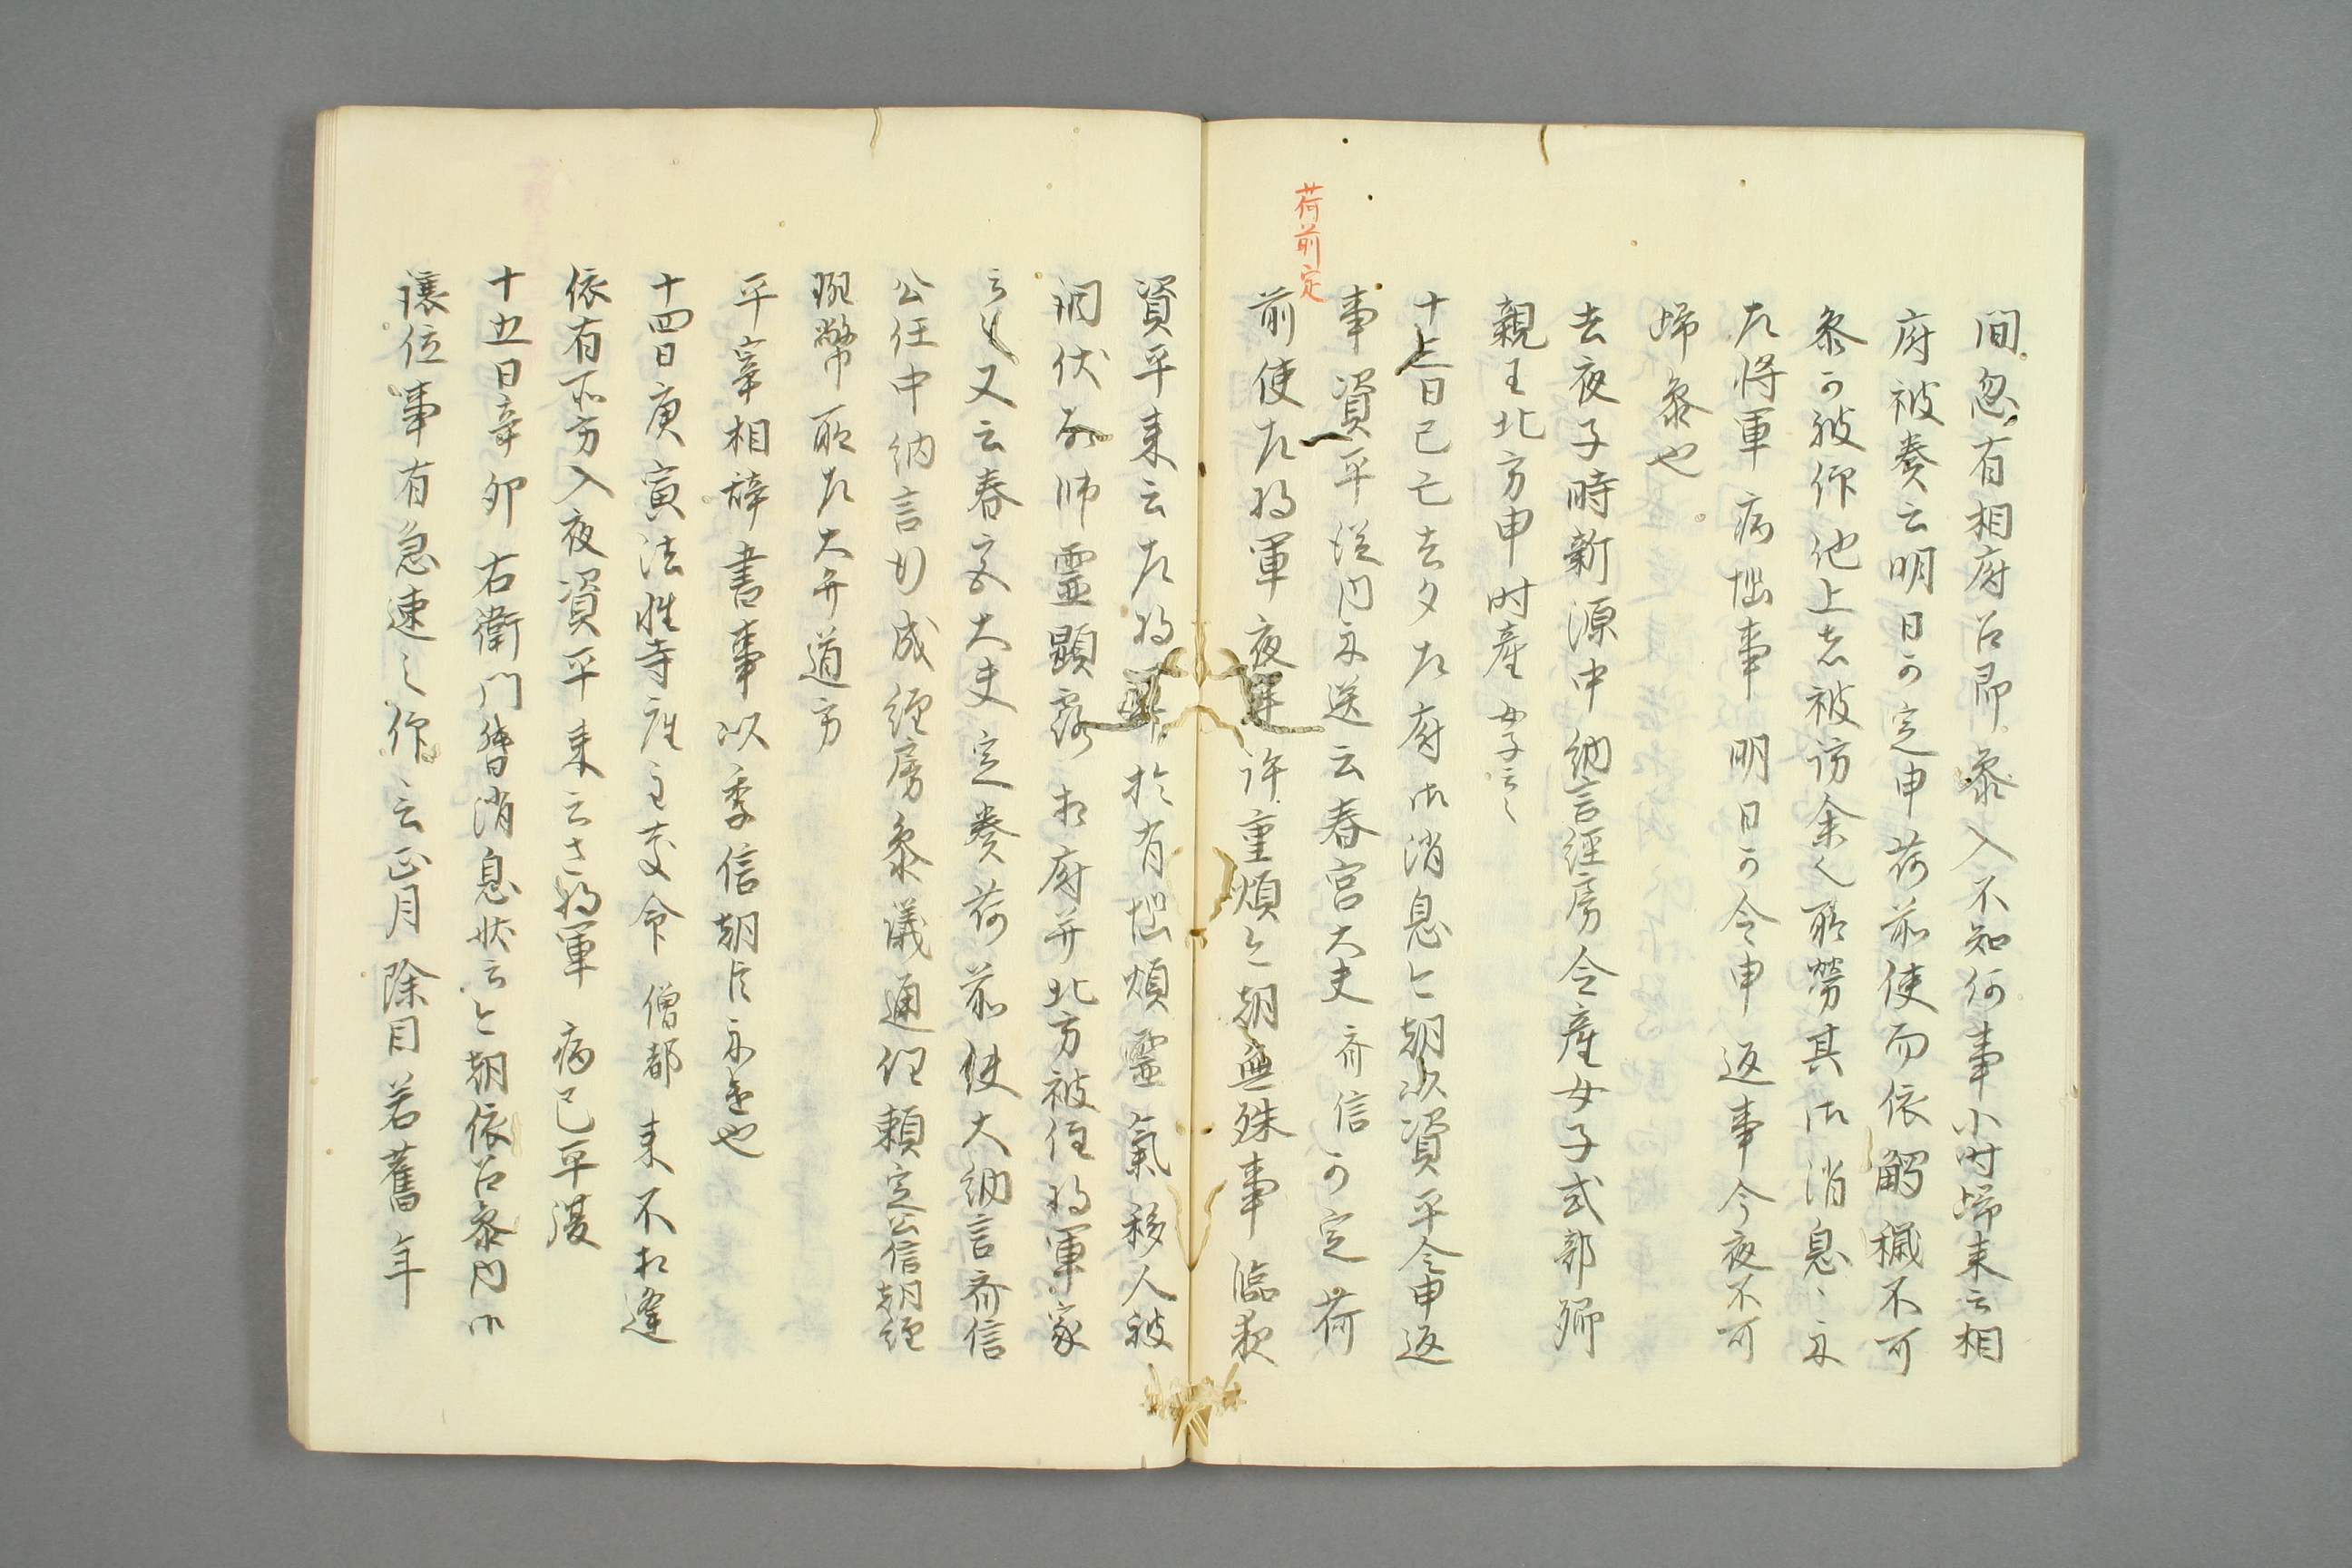 間忽有相府召即參入不知何事小時歸来云相
府被奏云明日可定申荷前使而依觸穢不可
參可被仰他上者被訪余之所勞其御消息、亦
左将軍病惱事明日可令申返事今夜不可
歸參也
去夜子時新源中納言經房令産女子式部卿
親王北方申时産女子云〻
十三日己丑去夕左府御消息今朝以資平令申返
荷前定
事資平從内示送云春宮大夫齊信可定荷
前使左将軍夜半許重煩今朝無殊事臨夜
資平来云左将軍於有惱煩霊氣移人被
調伏故帥霊顕露相府并北方被住将軍家
云〻又云春宮大夫定奏荷前使大納言齊信
公任中納言行成經房參議通任頼定公信朝經
班幣所左大弁道方
平宰相辞書事以季信朝臣示送也
十四日庚寅法性寺座主慶命僧都来不相逢
依有所労入夜資平来云左将軍病已平復
十五日辛卯右衛門督消息状云今朝依召參内御
讓位事有急速之仰云正月除目若舊年